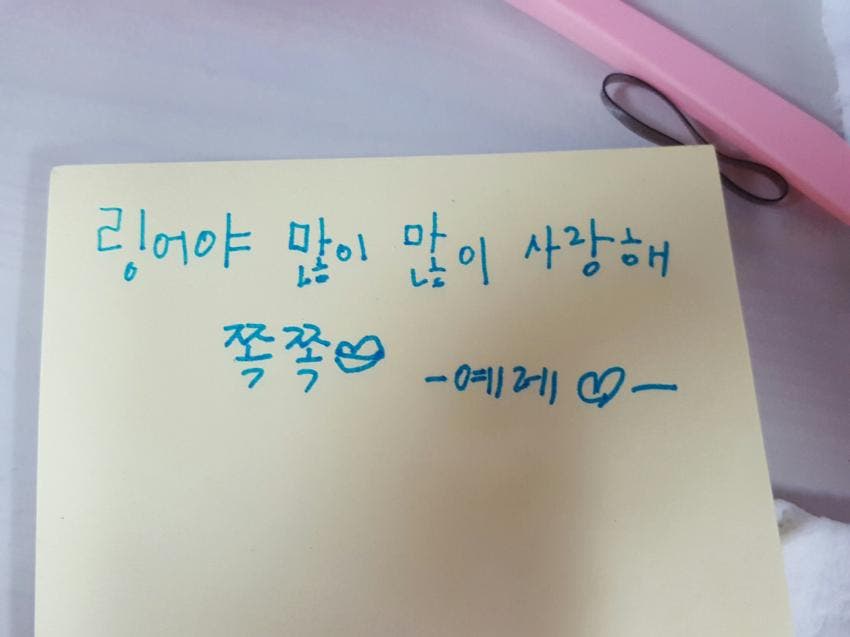 링어야 많이 많이 사랑해
쪽쪽♡
-예레♡-